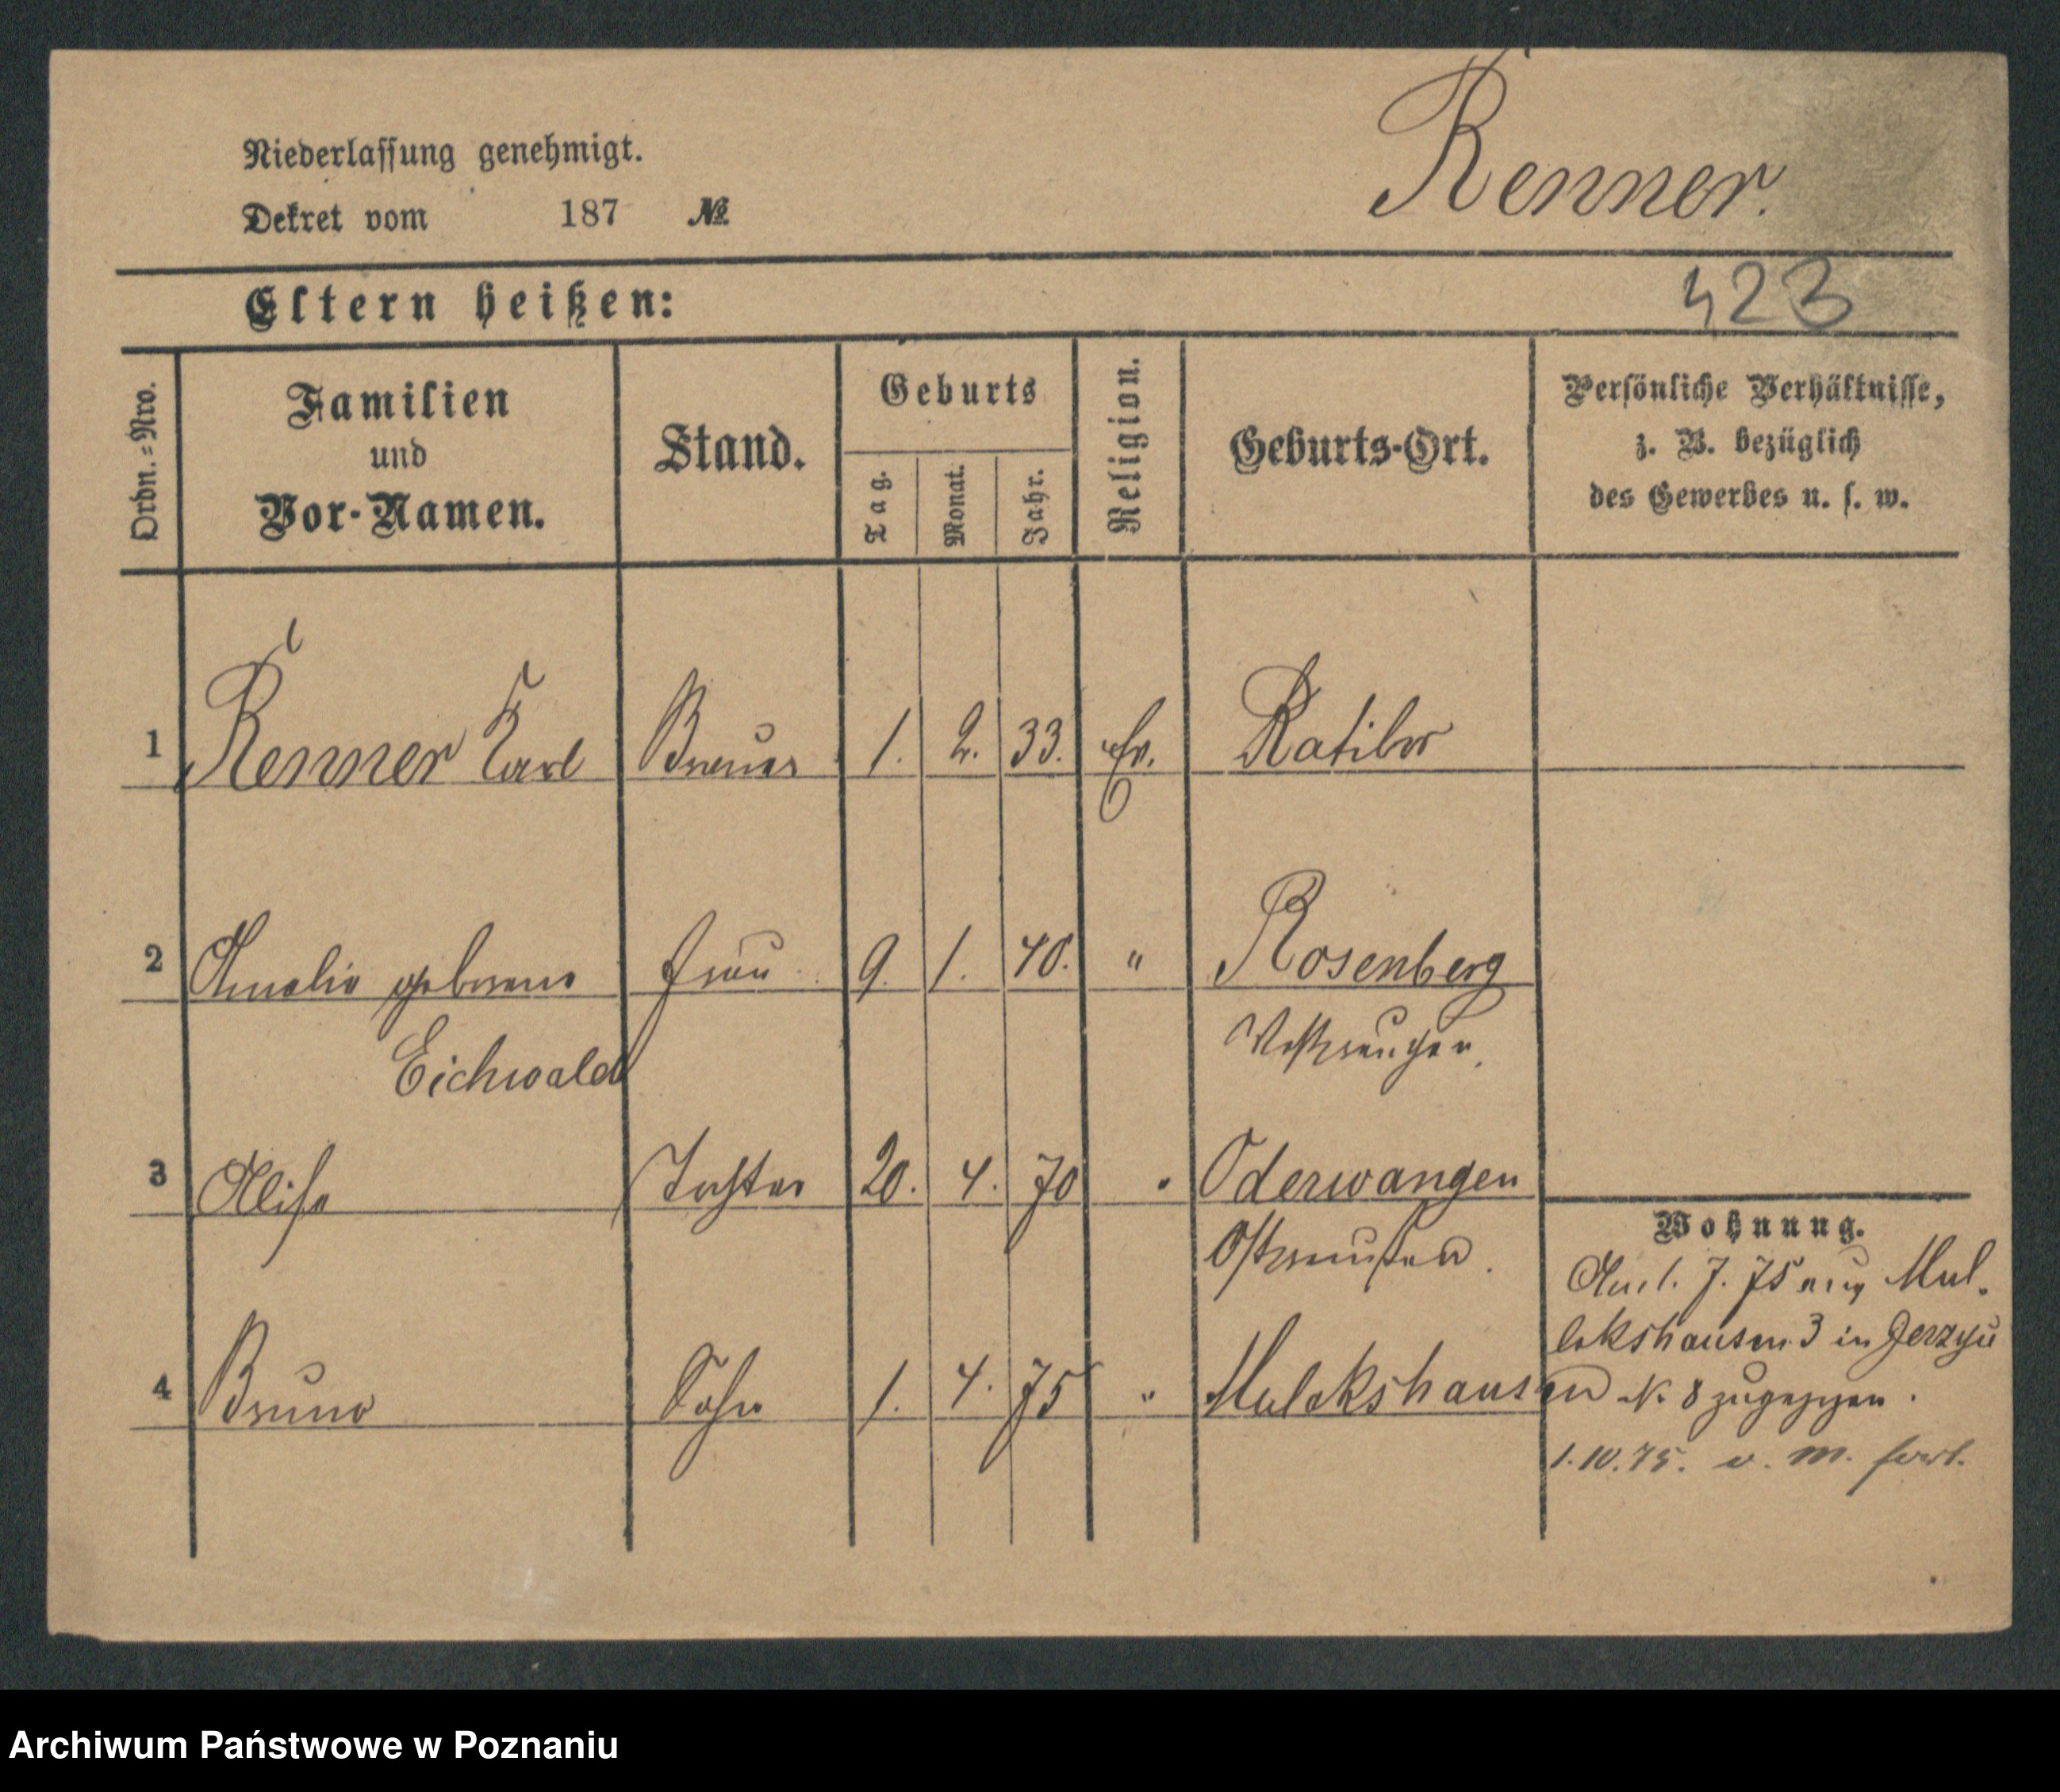 Renner.
Niederlassung genehmigt.
Dekret vom 187 №
423
Eltern heißen:
Ordn.=Nro. Familien und Vor-Namen. Stand. Geburts Tag. Monat. Jahr. Religion. Geburts-Ort. Persönliche Verhältnisse, z. B. bezüglich des Gewerbes u. s. w.
1 Renner Karl Brauer 1. 2. 33. Ev. Ratibor
2 Amalie geborene Frau 9. 1. 40. " Rosenberg
Eichwald Westpreußen.
3 Tochter 20. 4. 70 " Oderwangen
Ostpreußen.
Wohnung.
4 Bruno Sohn 1. 4. 75 " Mulakshausen
7. 75 aus Mul-
lakshausen 3 in Jerzyce
N. 8 zugezogen.
1.10.75. v. M. fort.
Archiwum Państwowe w Poznaniu